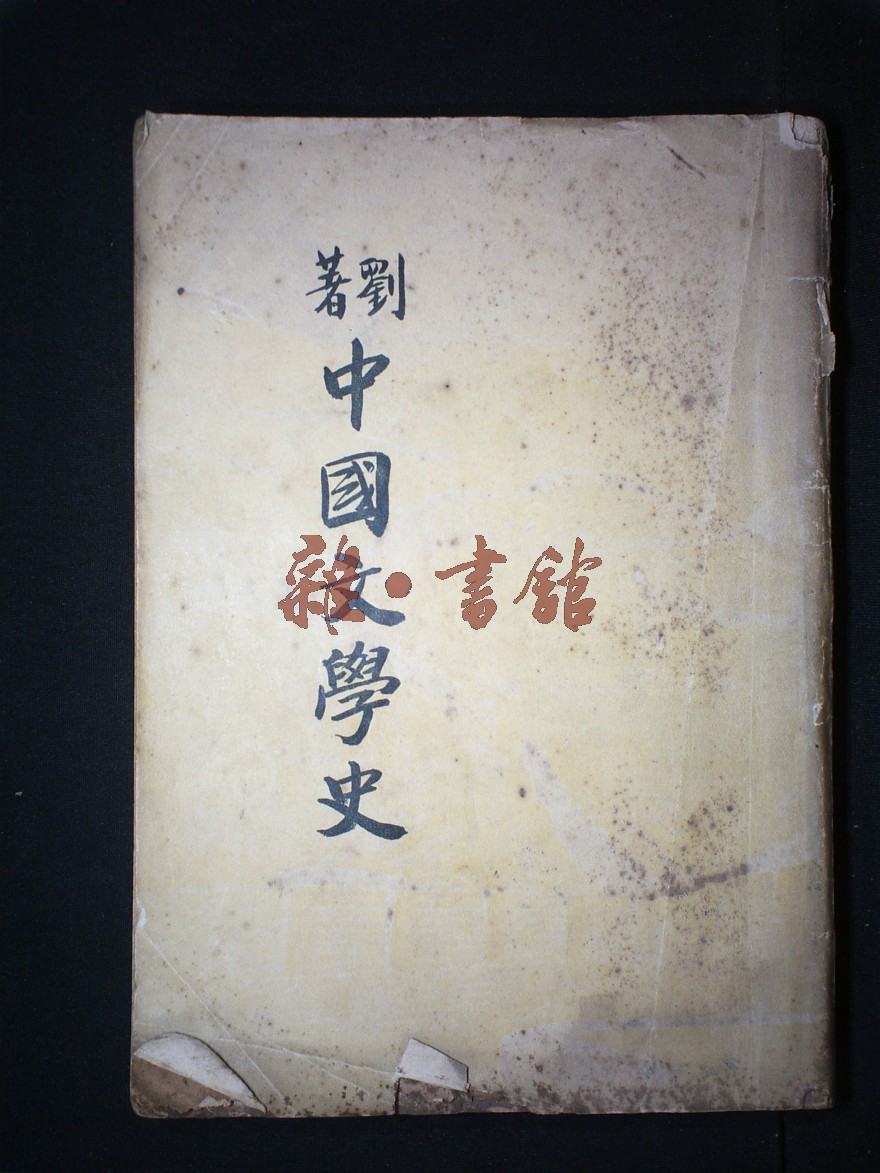 劉著
中國文學史
雜·書館